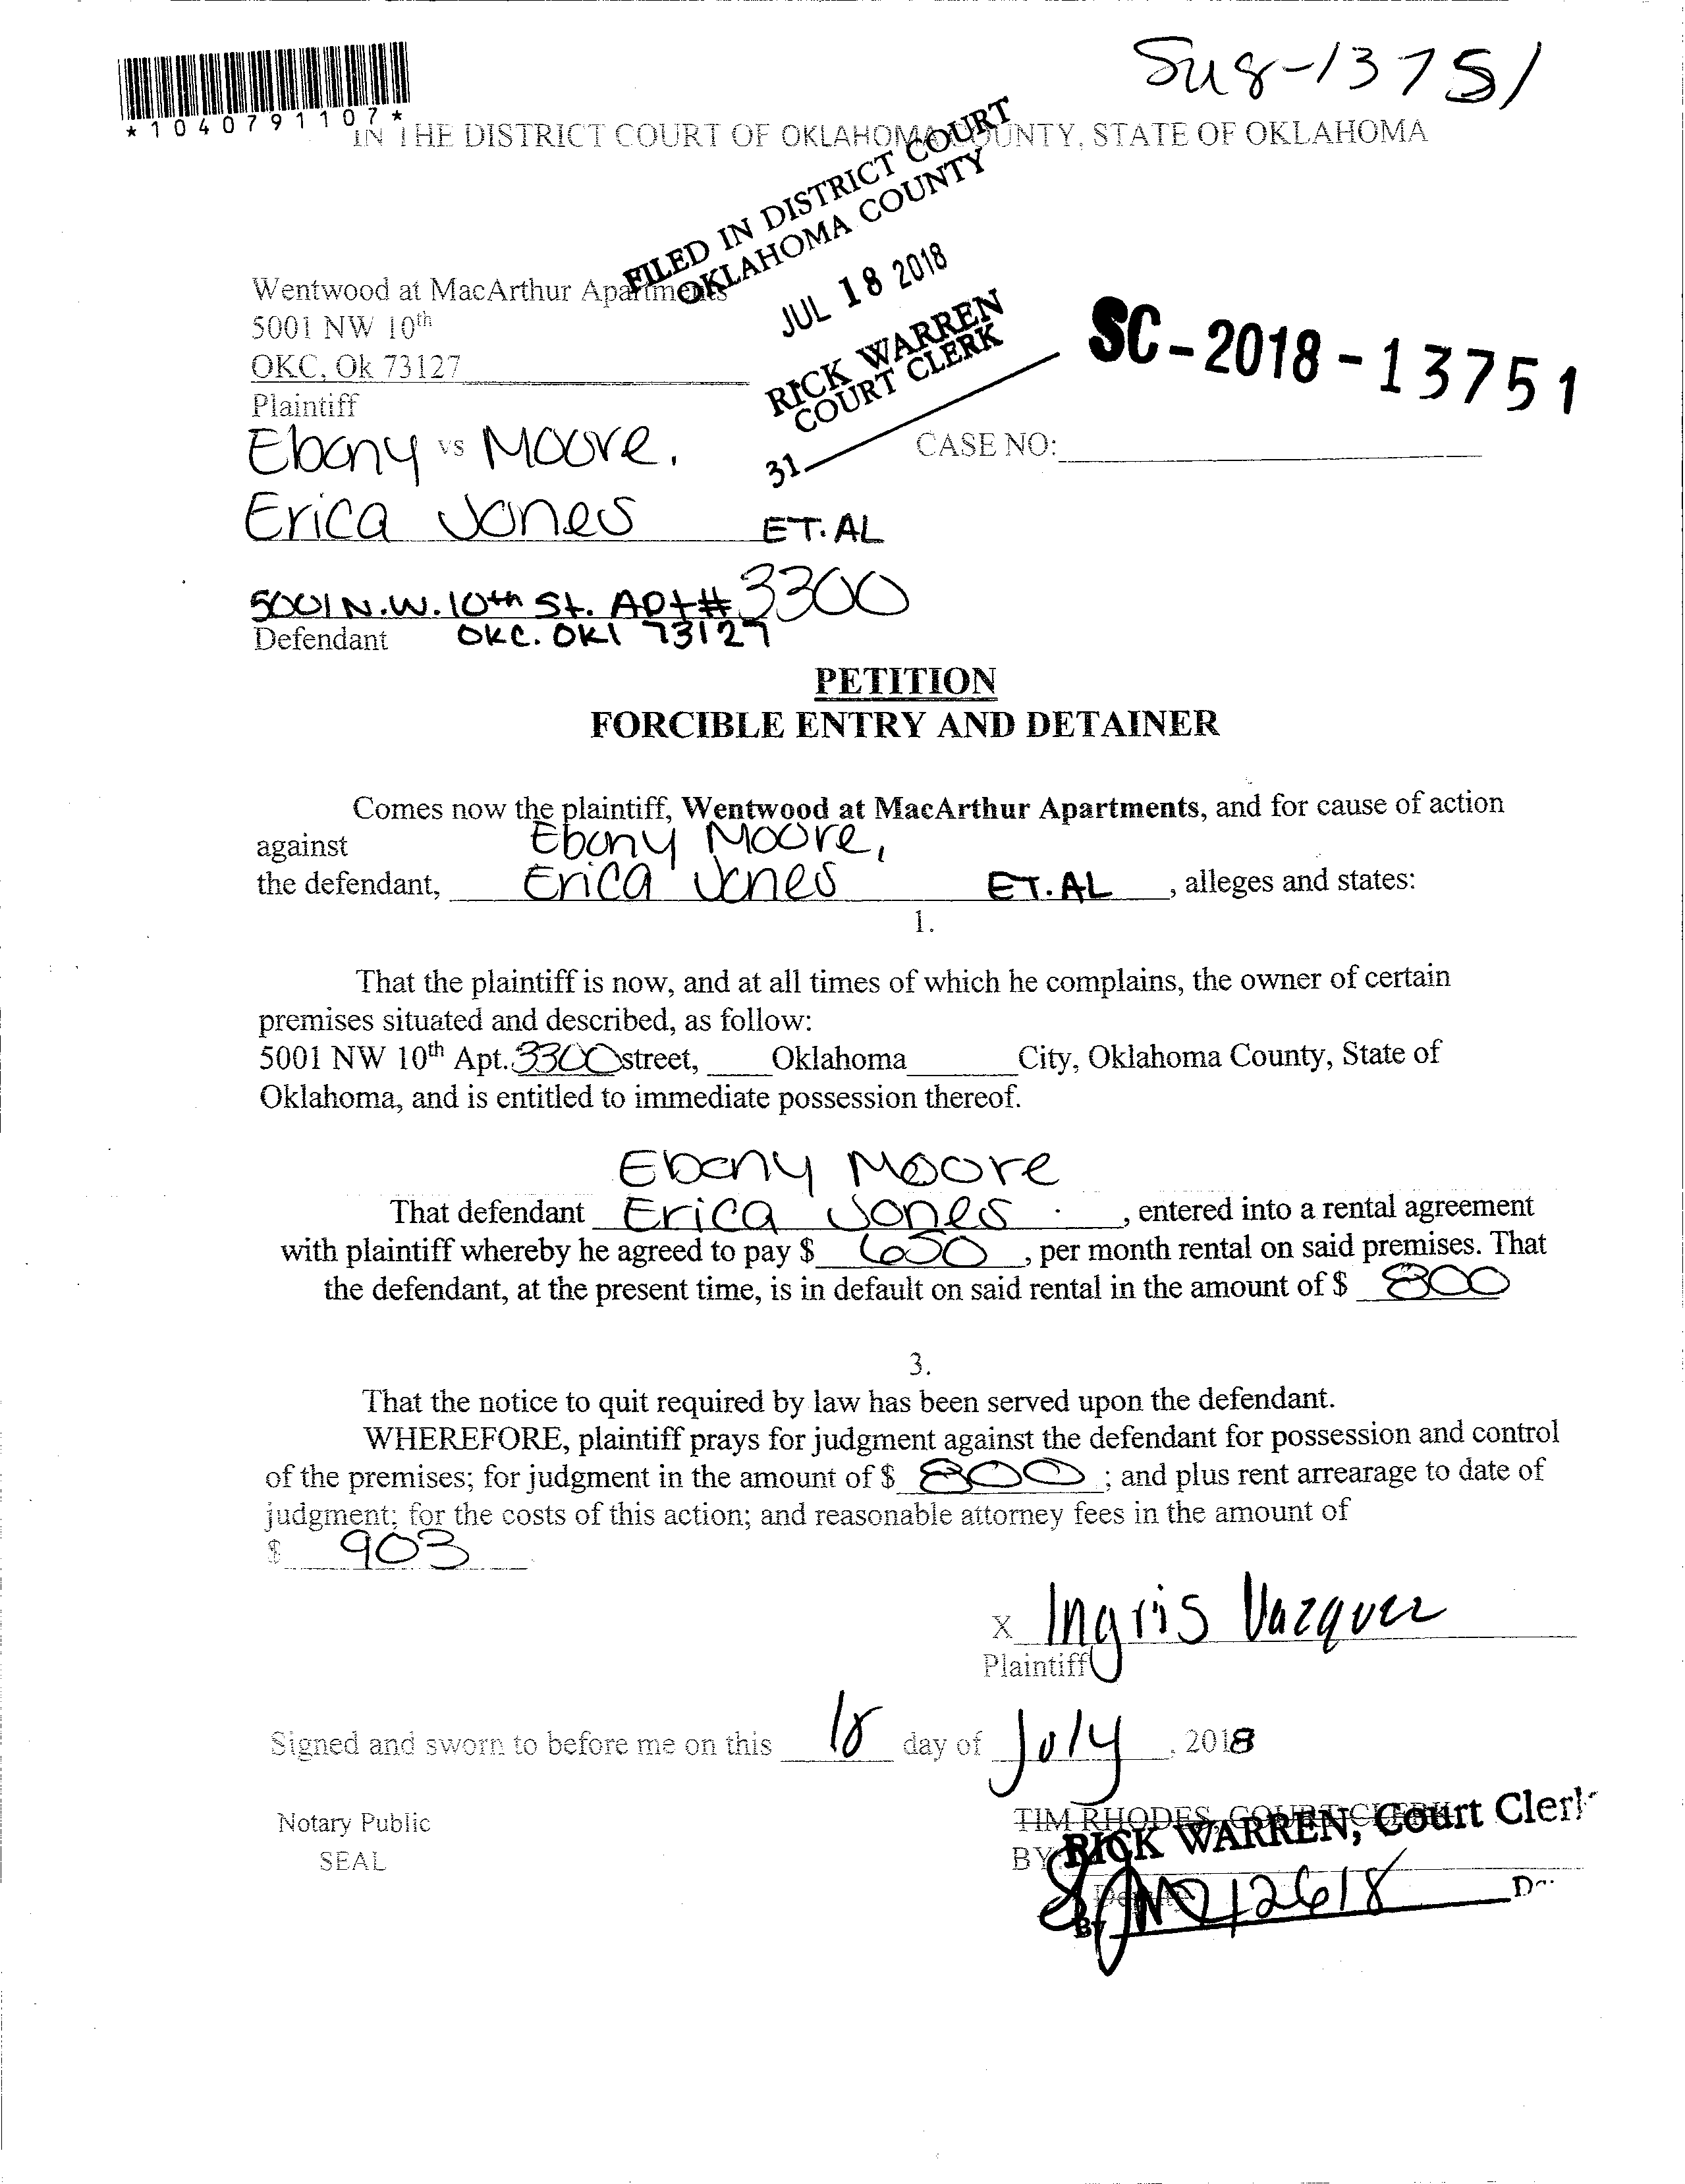 SC-2018-13751
*1040791107*
IN THE DISTRICT COURT OF OKLAHOMA COUNTY, STATE OF OKLAHOMA
FILED IN DISTRICT COURT
OKLAHOMA COUNTY
JUL 18 2018
RICK WARREN
COURT CLERK
31
Wentwood at MacArthur Apartments
5001 NW 10th
OKC, Ok 73127
Plaintiff
CASE NO:
Ebony vs Moore,
Erica Jones ET.AL
5001 N.W. 10th St. Apt# 3300
Defendant OKC. OKl 73127
PETITION
FORCIBLE ENTRY AND DETAINER
Comes now the plaintiff, Wentwood at MacArthur Apartments, and for cause of action
against Ebony Moore,
the defendant, Erica Jones ET.AL , alleges and states:
1.
That the plaintiff is now, and at all times of which he complains, the owner of certain
premises situated and described, as follow:
5001 NW 10th Apt. 3300 street, Oklahoma City, Oklahoma County, State of
Oklahoma, and is entitled to immediate possession thereof.
Ebony Moore
That defendant Erica Jones , entered into a rental agreement
with plaintiff whereby he agreed to pay $ 650 , per month rental on said premises. That
the defendant, at the present time, is in default on said rental in the amount of $ 800
3.
That the notice to quit required by law has been served upon the defendant.
WHEREFORE, plaintiff prays for judgment against the defendant for possession and control
of the premises; for judgment in the amount of $ 800 ; and plus rent arrearage to date of
judgment; for the costs of this action; and reasonable attorney fees in the amount of
$ 903
X Ingris Vazquez
Plaintiff
Signed and sworn to before me on this 18 day of July , 2018
Notary Public
SEAL
TIM RHODES, COURT CLERK
RICK WARREN, Court Clerk
BY
Deputy
By